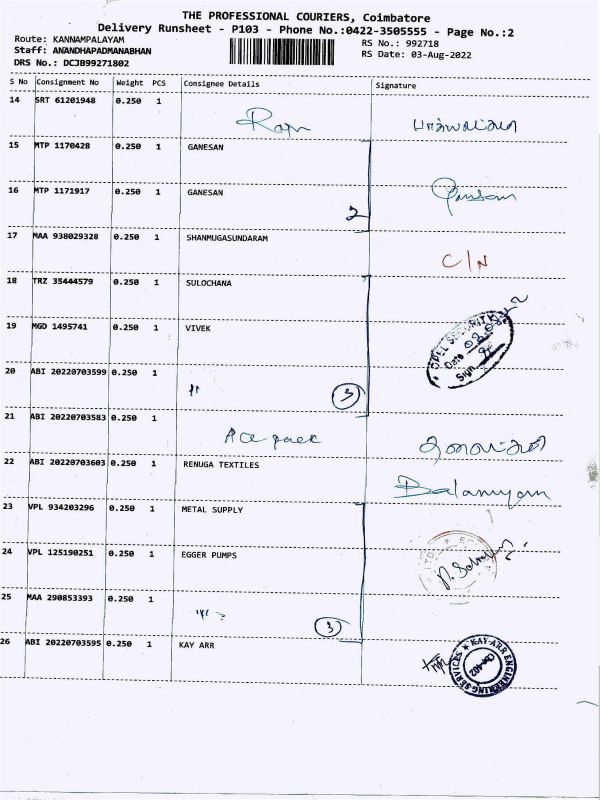 THE PROFESSIONAL COURIERS, Coimbatore
Delivery Runsheet - P103 - Phone No.:0422-3505555 - Page No.:2
Route: KANNAMPALAYAM
RS No.: 992718
Staff: ANANDHAPADMANABHAN
RS Date: 03-Aug-2022
DRS No.: DCJB99271802
S No Consignment No Weight PCS Consignee Details Signature
14 SRT 61201948 0.250 1
15 MTP 1170428 0.250 1 GANESAN
16 MTP 1171917 0.250 1 GANESAN
2
17 MAA 938029328 0.250 1 SHANMUGASUNDARAM
C/N
18 TRZ 35444579 0.250 1 SULOCHANA
19 MGD 1495741 0.250 1 VIVEK
SECURITY
Date
Sign
20 ABI 20220703599 0.250 1
3
21 ABI 20220703583 0.250 1
Ace pack
22 ABI 20220703603 0.250 1 RENUGA TEXTILES
23 VPL 934203296 0.250 1 METAL SUPPLY
24 VPL 125190251 0.250 1 EGGER PUMPS
25 MAA 290853393 0.250 1
3
26 ABI 20220703595 0.250 1 KAY ARR
KAY ARR ENGINEERING SERVICES